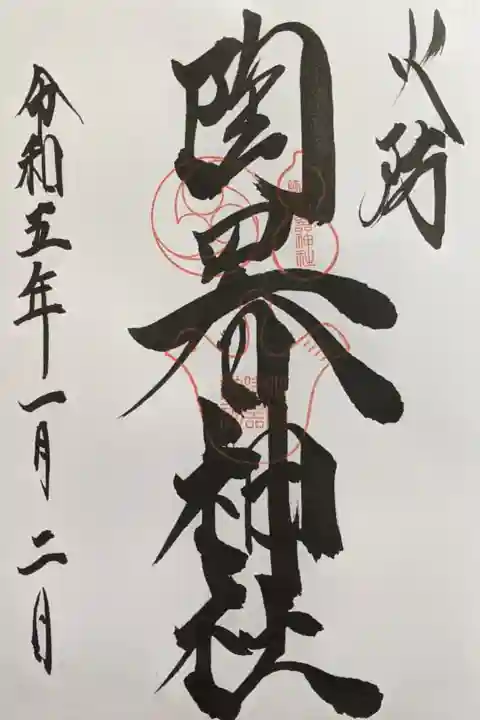 火防
陶器神社
令和五年一月二日
陶器神社